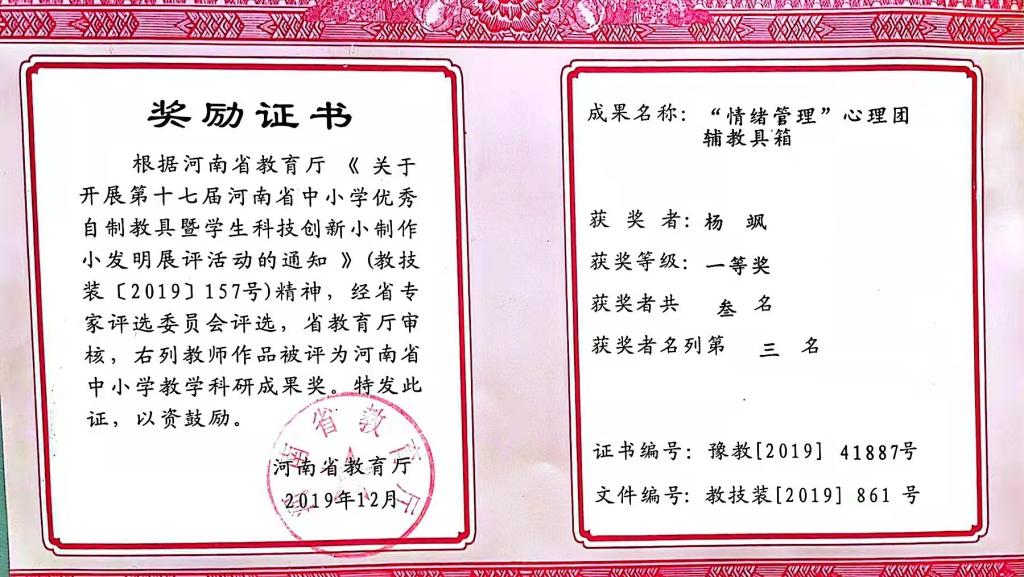 奖励证书
根据河南省教育厅《关于
开展第十七届河南省中小学优秀
自制教具暨学生科技创新小制作
小发明展评活动的通知》(教技
装〔2019〕157号)精神，经省专
家评选委员会评选，省教育厅审
核，右列教师作品被评为河南省
中小学教学科研成果奖。特发此
证，以资鼓励。
河南省教育厅
2019年12月
河南省教育厅
成果名称：“情绪管理”心理团
辅教具箱
获奖者：杨飒
获奖等级：一等奖
获奖者共 叁 名
获奖者名列第 三 名
证书编号：豫教[2019] 41887号
文件编号：教技装[2019] 861 号